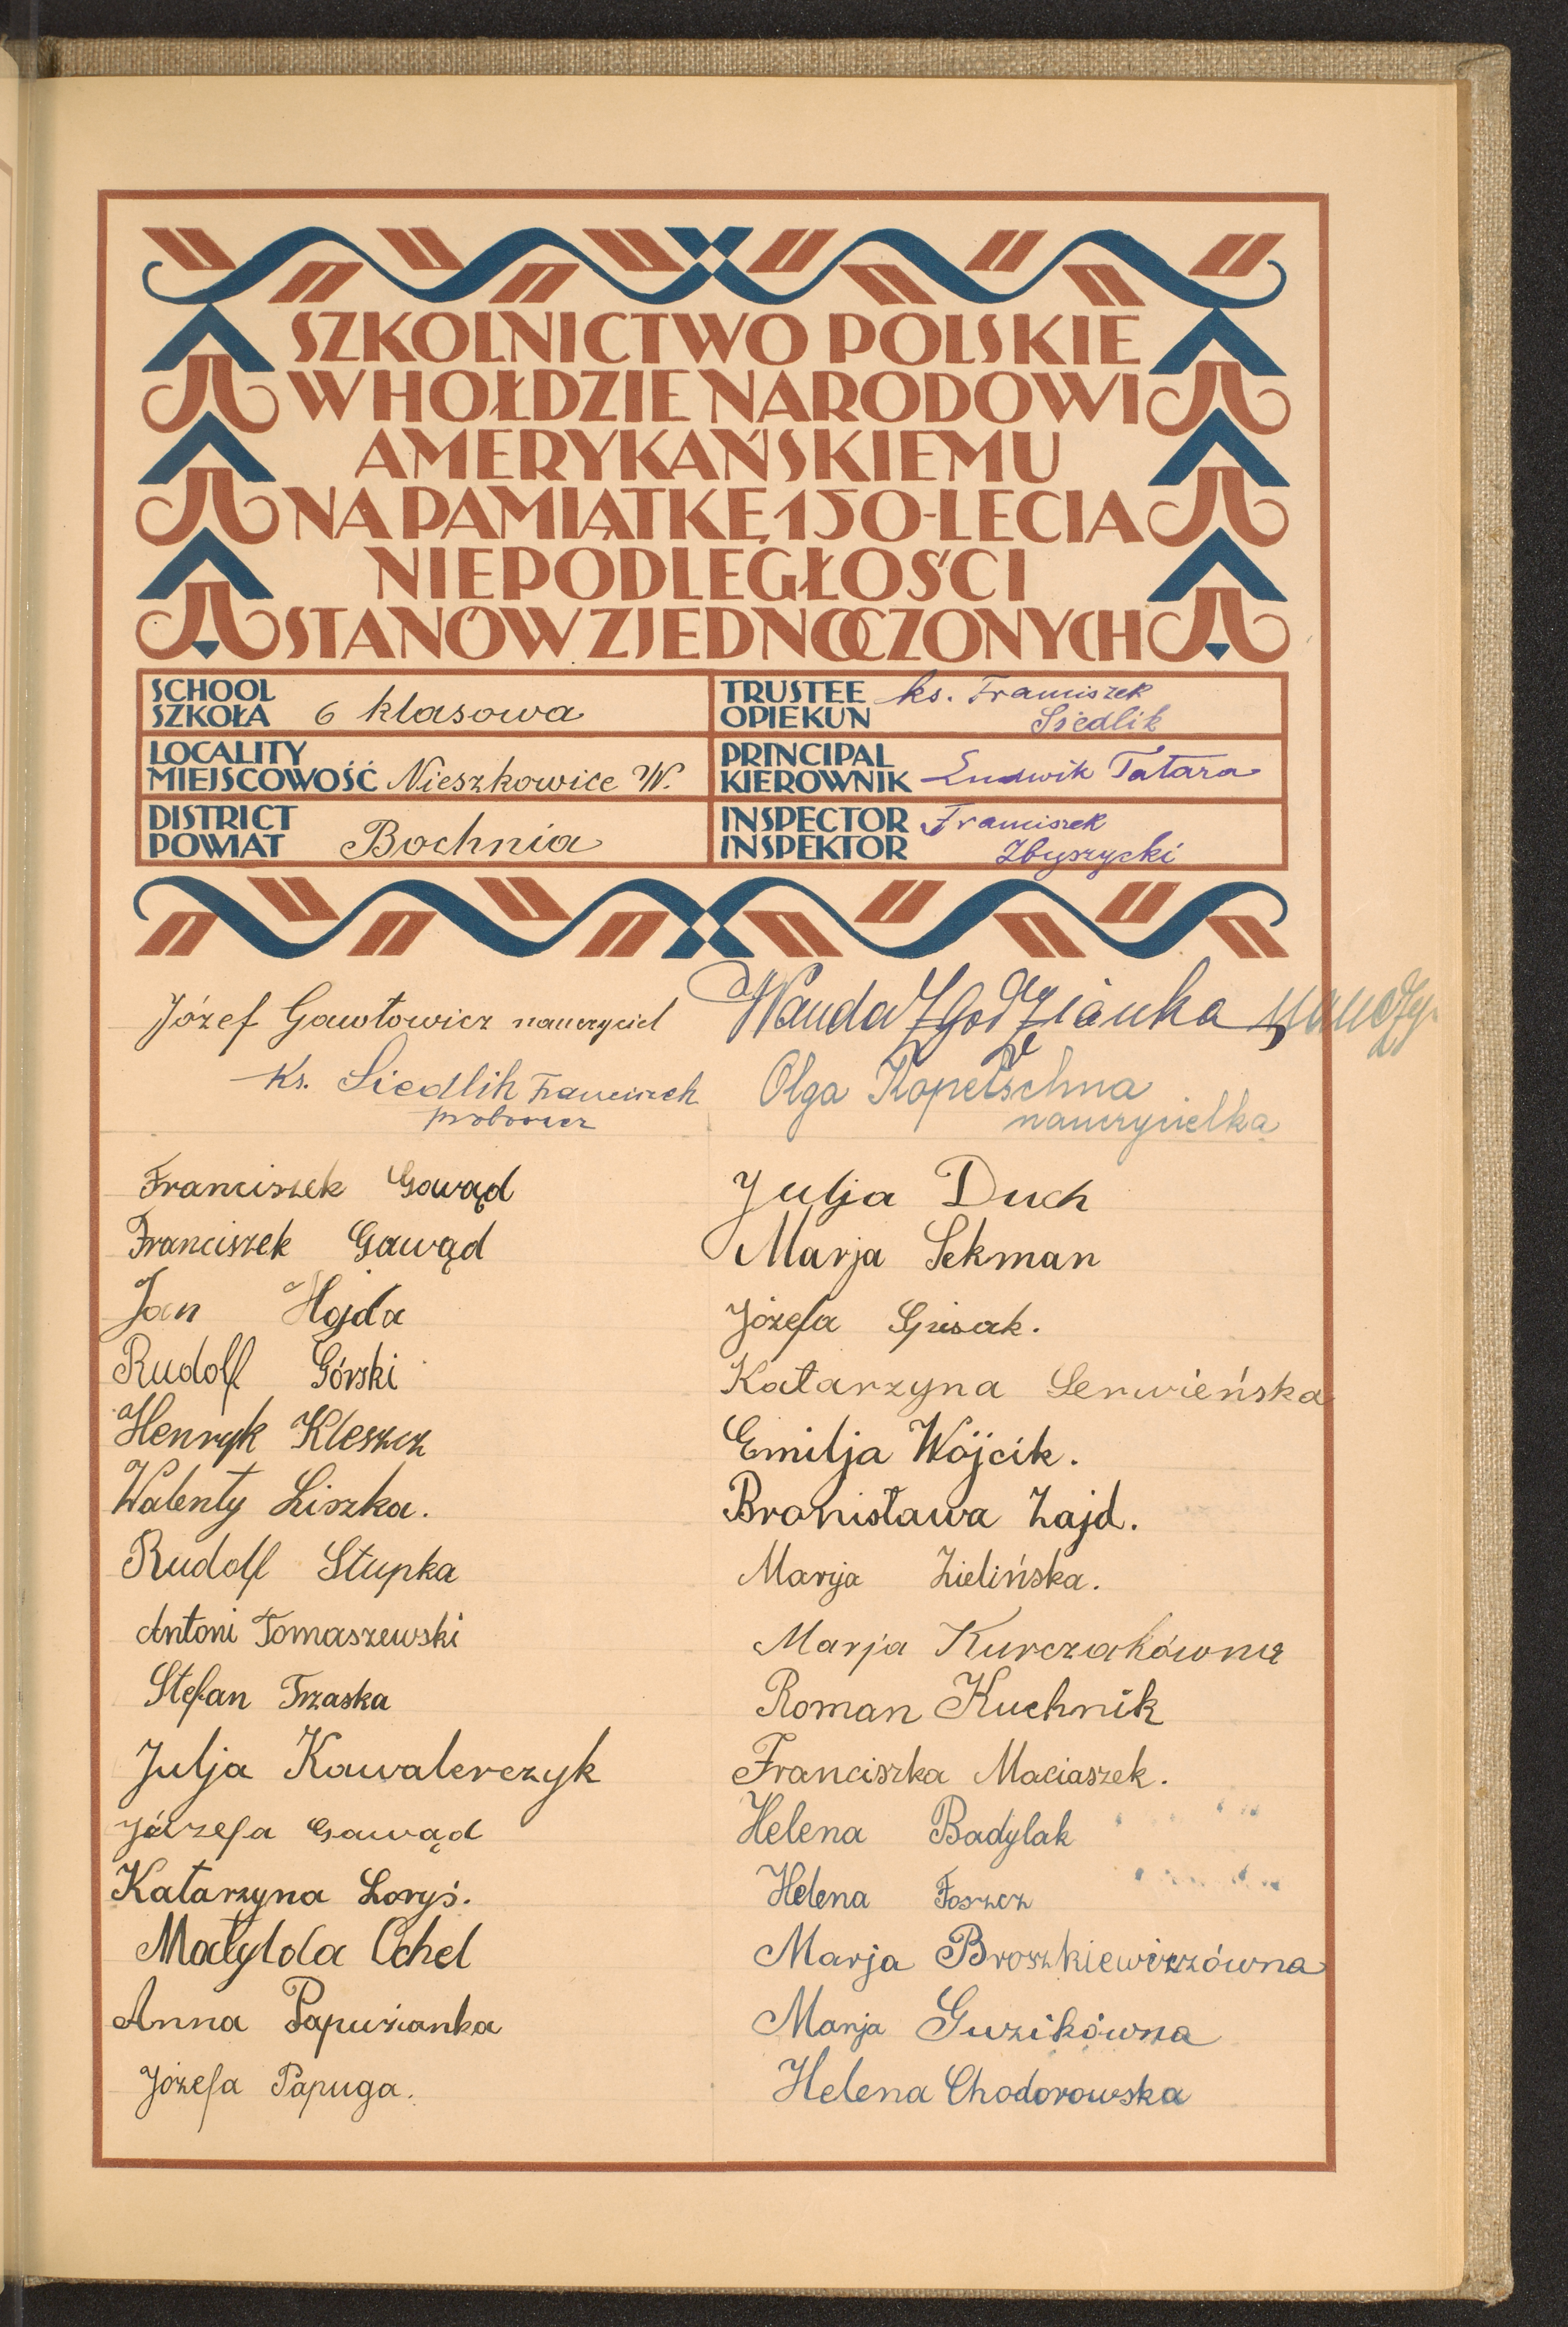 SZKOLNICTWO POLSKIE
W HOŁDZIE NARODOWI
AMERYKAŃSKIEMU
NA PAMIĄTKĘ 150-LECIA
NIEPODLEGŁOŚCI
STANÓW ZJEDNOCZONYCH
SCHOOL
SZKOŁA 6 klasowa
TRUSTEE
OPIEKUN ks. Franciszek
Siedlik
LOCALITY
MIEJSCOWOŚĆ Nieszkowice W.
PRINCIPAL
KIEROWNIK Ludwik Tatara
DISTRICT
POWIAT Bochnia
INSPECTOR
INSPEKTOR Franciszek
Zbyszycki
Józef Gawłowicz nauczyciel
Ks. Siedlik Franciszek
proboszcz
Wanda Zgodzianka
Olga Kopetschna
nauczycielka
Franciszek Gawąd
Franciszek Gawąd
Jan Hojda
Rudolf Górski
Henryk Kleszcz
Walenty Liszka.
Rudolf Słupka
Antoni Tomaszewski
Stefan Trzaska
Julja Kawalerczyk
Józefa Gawąd
Katarzyna Loryś.
Matylda Ochel
Anna Papużanka
Józefa Papuga.
Julja Duch
Marja Sekman
Józefa
Katarzyna Serwieńska
Emilja Wójcik.
Bronisława Zajd.
Marja Zielińska.
Marja Kurczakówna
Roman Kuchnik
Franciszka Maciaszek.
Helena Badylak
Helena Foszcz
Marja Broszkiewiczówna
Marja Guzikówna
Helena Chodorowska